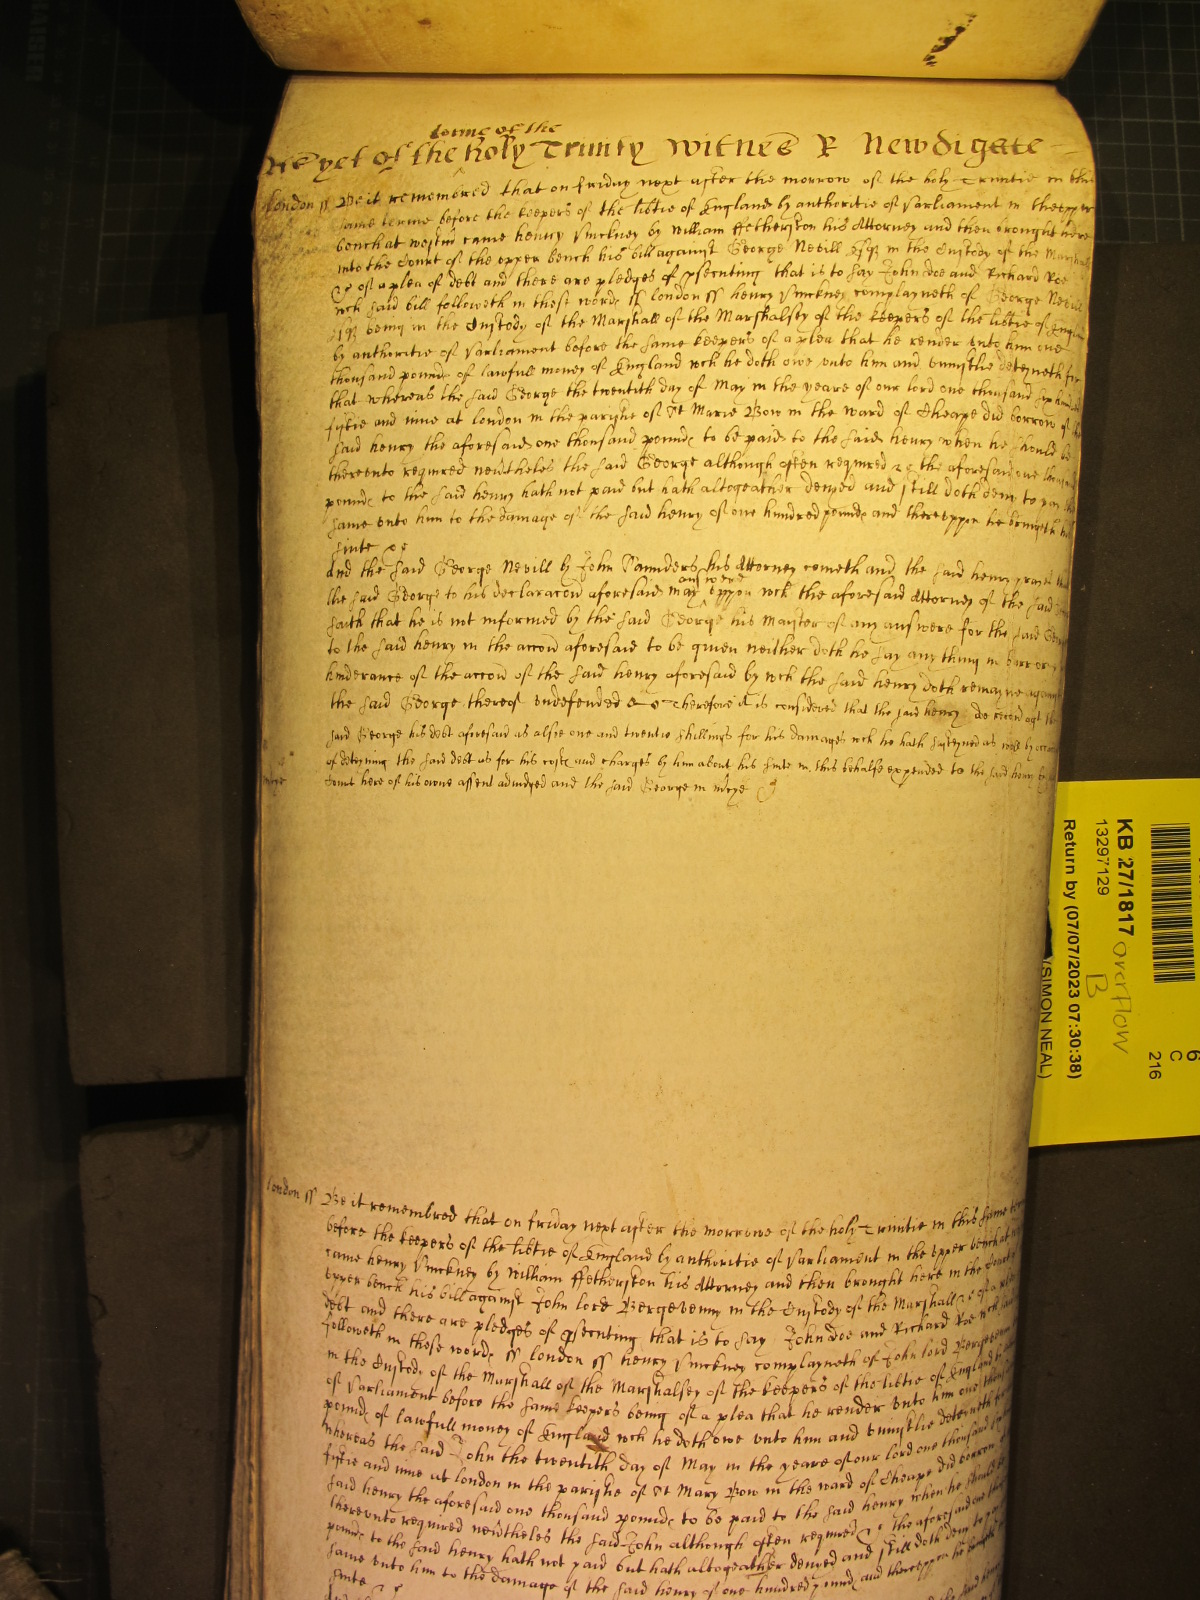 terme of the
As yet of the holy Trinity Witnes R Newdigate
London ss Be it remembred that on friday next after the morrow of the holy Trinitie in this
same terme before the keepers of the lib͠tie of England by authoritie of Parliament in the upper
bench at westm͠ came henry Pinckney by William ffetherston his Attorney and then brought here
into the Court of the upper bench his bill against George Nevill Esq in the Custody of the Marshall
&c of a plea of debt and there are pledges of p̱secuting that is to say John Doe and Richard Roe
wch said bill followeth in these words ss London ss henry Pinckney complayneth of George Nevill
Esq being in the Custody of the Marshall of the Marshalsey of the keepers of the lib͠tie of England
by authoritie of Parliament before the same keepers of a plea that he render unto him one
thousand pounds of lawfull money of England wch he doth owe unto him and uniustlie deteyneth for
that whereas the said George the twentith day of May in the yeare of our lord one thousand six hundred
fiftie and nine at London in the parishe of St Marie Bow in the ward of Cheape did borrow of the
said henry the aforesaid one thousand pounds to be paid to the said henry when he should be
thereunto required nev͠theles the said George although often required &c the aforesaid one thousand
pounds to the said henry hath not paid but hath altogeather denyed and still doth deny to pay the
same unto him to the damage of the said henry of one hundred pounds and thereuppon he bringeth his
suite &c
And the said George Nevill by John Saunders his Attorney cometh and the said henry prayeth that
answere
the said George to his declarac͠on aforesaid may uppon wch the aforesaid Attorney of the said
saith that he is not informed by the said George his Master of any answere for the said George
to the said henry in the acc͠on aforesaid to be given neither doth he say any thing in barr or
hinderance of the acc͠on of the said henry aforesaid by wch the said henry doth remayne against
the said George thereof undefended &c Therefore it is considered that the said henry do recov͠ agt the
said George his debt aforesaid as alsoe one and twentie shillings for his damages wch he hath susteyned as well by occac͠on
of deteyning the said debt as for his costs and charges by him about his suite in this behalfe expended to the said henry by the
m͠cye Court here of his owne assent adiudged and the said George in m͠cye &c
London ss Be it remembred that on friday next after the morrowe of the holy Trinitie in this same terme
before the keepers of the lib͠tie of England by authoritie of Parliament in the upper bench at
came henry Pinckney by William ffetherston his Attorney and then brought here in the Court of
upper bench his bill against John lord Bergevenny in the Custody of the Marshall &c of a plea
debt and there are pledges of p̱secuting that is to say John Doe and Richard Roe wch said
followeth in these words ss London ss henry Pinckney complayneth of John lord Bergevenny
in the Custody of the Marshall of the Marshalsey of the keepers of the lib͠tie of England by
of Parliament before the same keepers being of a plea that he render unto him one thousand
pounds of lawfull money of England wch he doth owe unto him and uniustlie deteyneth for
whereas the said John the twentith day of May in the yeare of our lord one thousand six
fiftie and nine at London in the parishe of St Mary Bow in the ward of Cheape did borrow
said henry the aforesaid one thousand pounds to be paid to the said henry when he should be
thereunto required nev͠theles the said John although often required &c the aforesaid one
pounds to the said henry hath not paid but hath altogeather denyed and still doth deny to pay
same unto him to the damage of the said henry of one hundred pounds and thereuppon he bringeth
suite &c
KB 27/1817 overflow
B
13297129
Return by (07/07/2023 07:30:38)
(SIMON NEAL)
6
C
216